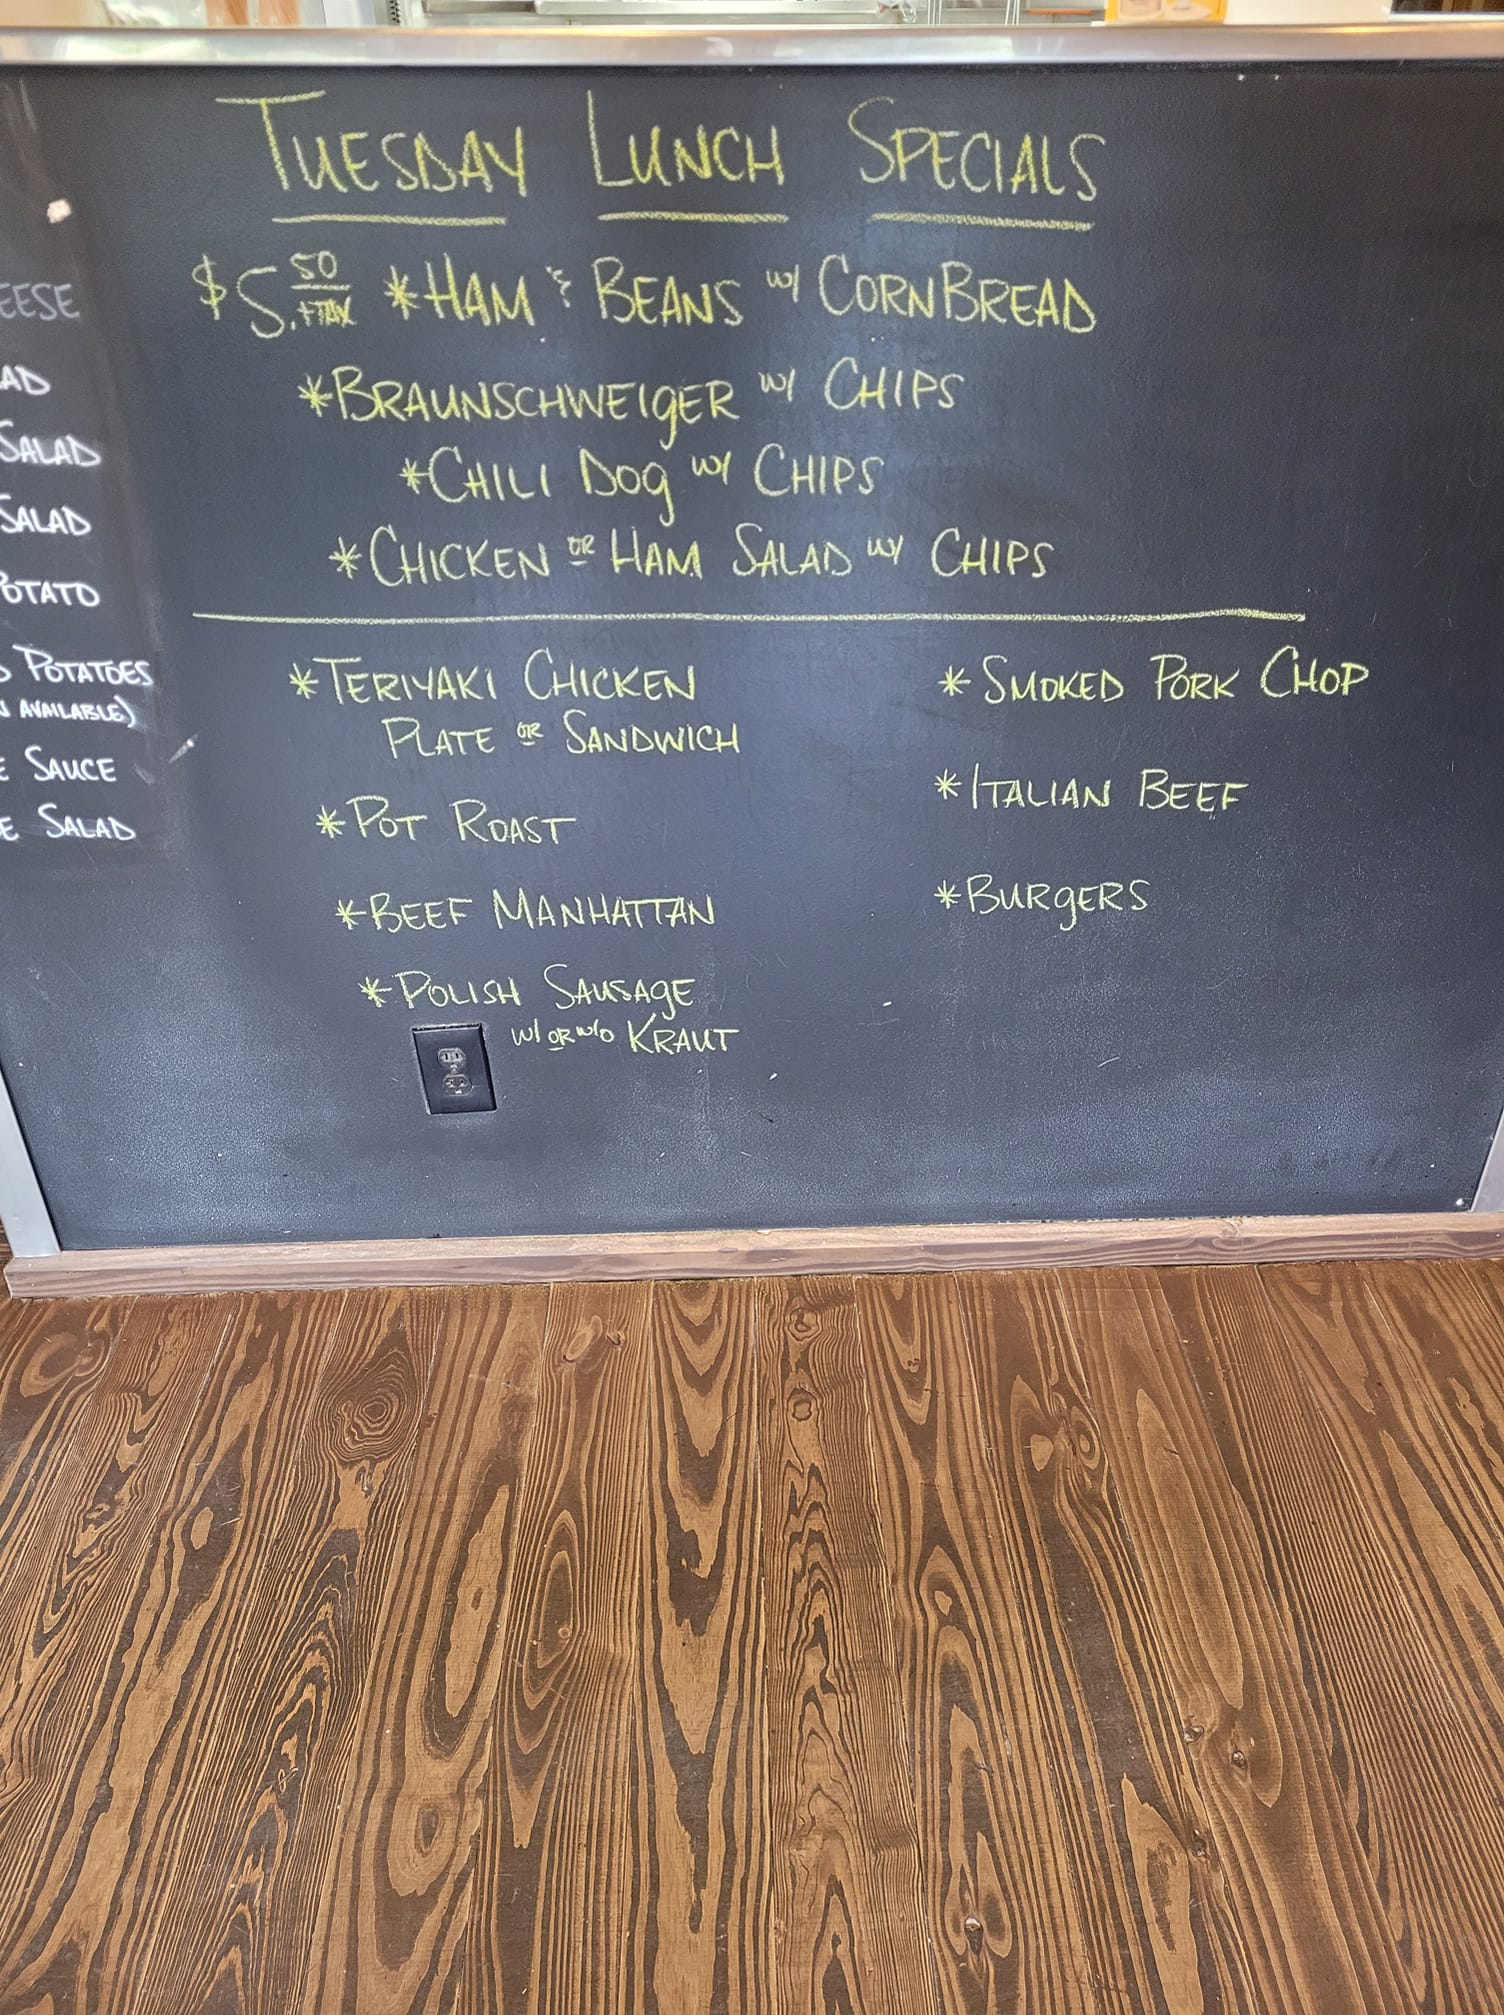 TUESDAY LUNCH SPECIALS
$5.50 +TAX *HAM & BEANS w/ CORNBREAD
*BRAUNSCHWEIGER w/ CHIPS
*CHILI DOG w/ CHIPS
*CHICKEN OR HAM SALAD w/ CHIPS
*TERIYAKI CHICKEN
PLATE OR SANDWICH
*POT ROAST
*BEEF MANHATTAN
*POLISH SAUSAGE
w/ OR w/o KRAUT
*SMOKED PORK CHOP
*ITALIAN BEEF
*BURGERS
SALAD
SALAD
POTATOES
AVAILABLE)
SAUCE
SALAD